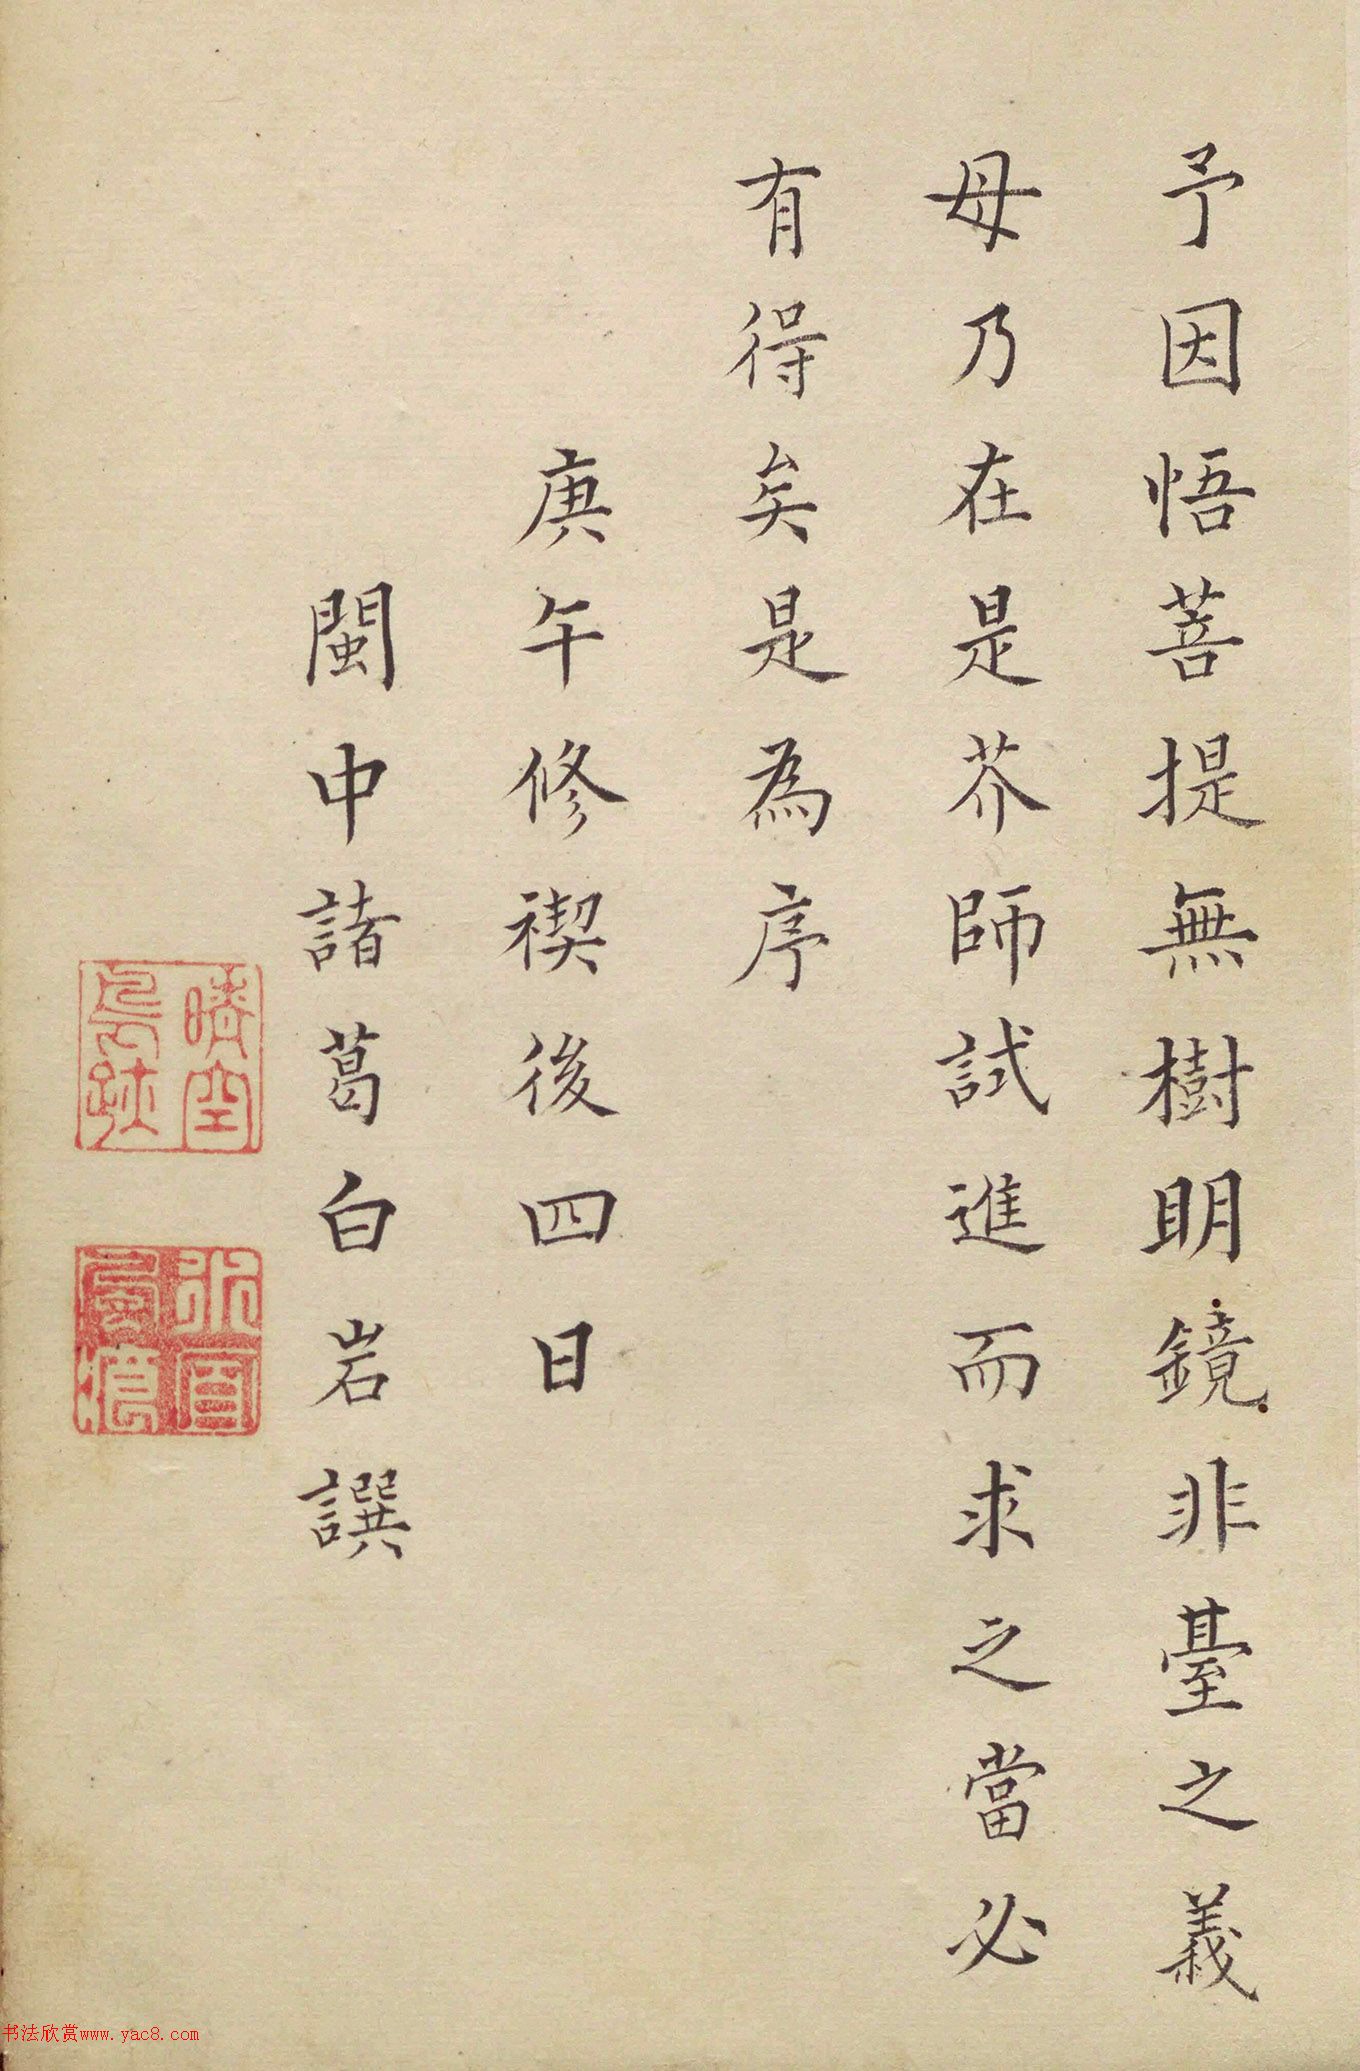 予因悟菩提無樹明鏡非臺之義
毋乃在是芥師試進而求之當必
有得矣是為序
庚午修禊後四日
閩中諸葛白岩譔
晴空鳥跡
書法欣赏www.yac8.com